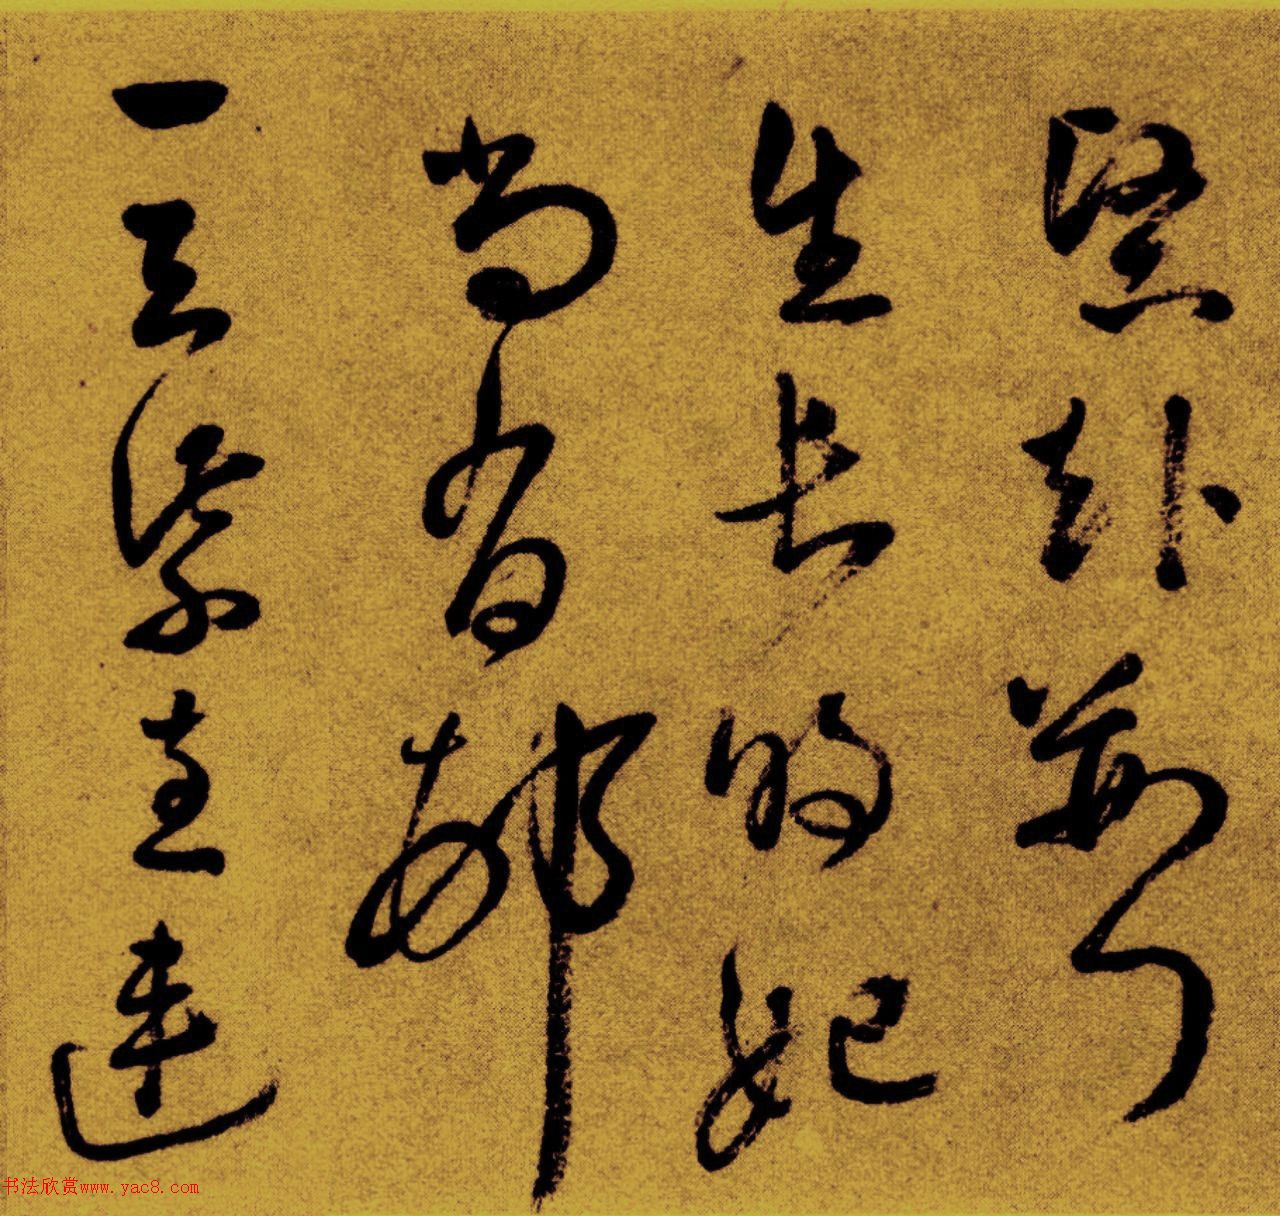 壑赴荊門
生長明妃
尚有邨
一去紫臺連
书法欣赏www.yac8.com